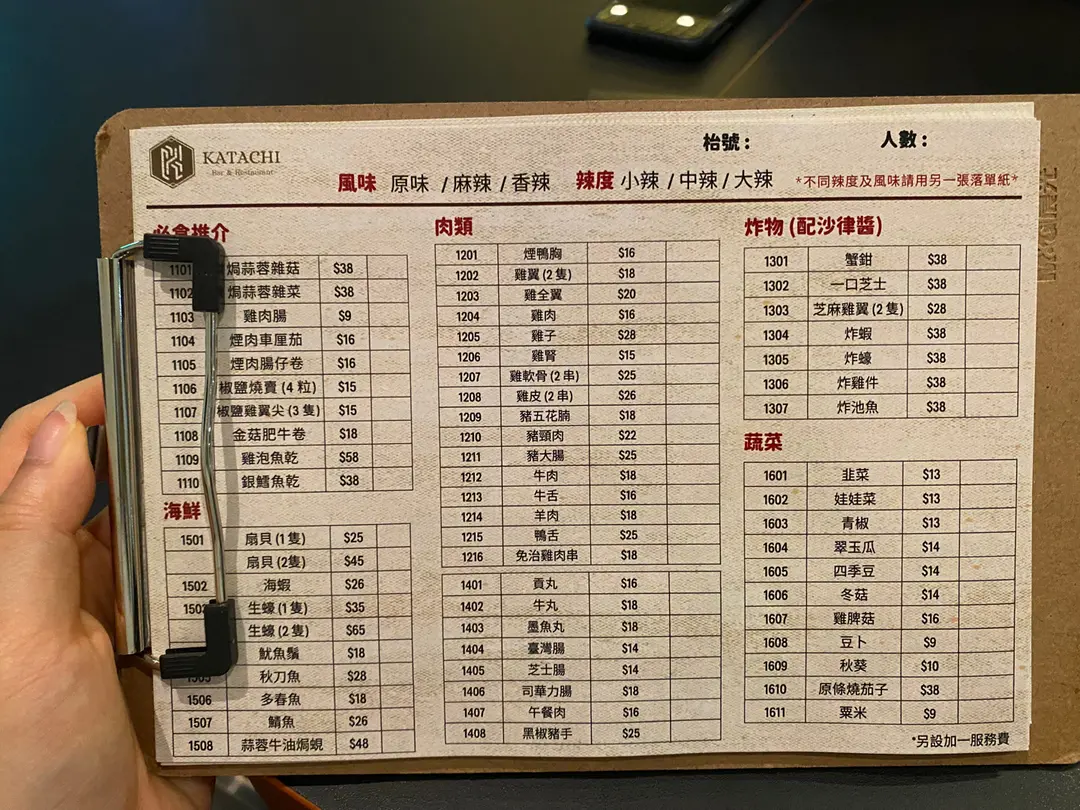 KATACHI
Bar & Restaurant
枱號：
人數：
風味 原味 / 麻辣 / 香辣 辣度 小辣 / 中辣 / 大辣 *不同辣度及風味請用另一張落單紙*
必食推介
1101 焗蒜蓉雜菇 $38
1102 焗蒜蓉雜菜 $38
1103 雞肉腸 $9
1104 煙肉車厘茄 $16
1105 煙肉腸仔卷 $16
1106 椒鹽燒賣 (4 粒) $15
1107 椒鹽雞翼尖 (3 隻) $15
1108 金菇肥牛卷 $18
1109 雞泡魚乾 $58
1110 銀鱈魚乾 $38
海鮮
1501 扇貝 (1 隻) $25
扇貝 (2隻) $45
1502 海蝦 $26
1503 生蠔 (1 隻) $35
生蠔 (2 隻) $65
魷魚鬚 $18
1505 秋刀魚 $28
1506 多春魚 $18
1507 鯖魚 $26
1508 蒜蓉牛油焗蜆 $48
肉類
1201 煙鴨胸 $16
1202 雞翼 (2 隻) $18
1203 雞全翼 $20
1204 雞肉 $16
1205 雞子 $28
1206 雞腎 $15
1207 雞軟骨 (2 串) $25
1208 雞皮 (2 串) $26
1209 豬五花腩 $18
1210 豬頸肉 $22
1211 豬大腸 $25
1212 牛肉 $18
1213 牛舌 $16
1214 羊肉 $18
1215 鴨舌 $25
1216 免治雞肉串 $18
1401 貢丸 $16
1402 牛丸 $18
1403 墨魚丸 $18
1404 臺灣腸 $14
1405 芝士腸 $14
1406 司華力腸 $18
1407 午餐肉 $16
1408 黑椒豬手 $25
炸物 (配沙律醬)
1301 蟹鉗 $38
1302 一口芝士 $38
1303 芝麻雞翼 (2 隻) $28
1304 炸蝦 $38
1305 炸蠔 $38
1306 炸雞件 $38
1307 炸池魚 $38
蔬菜
1601 韭菜 $13
1602 娃娃菜 $13
1603 青椒 $13
1604 翠玉瓜 $14
1605 四季豆 $14
1606 冬菇 $14
1607 雞脾菇 $16
1608 豆卜 $9
1609 秋葵 $10
1610 原條燒茄子 $38
1611 粟米 $9
*另設加一服務費